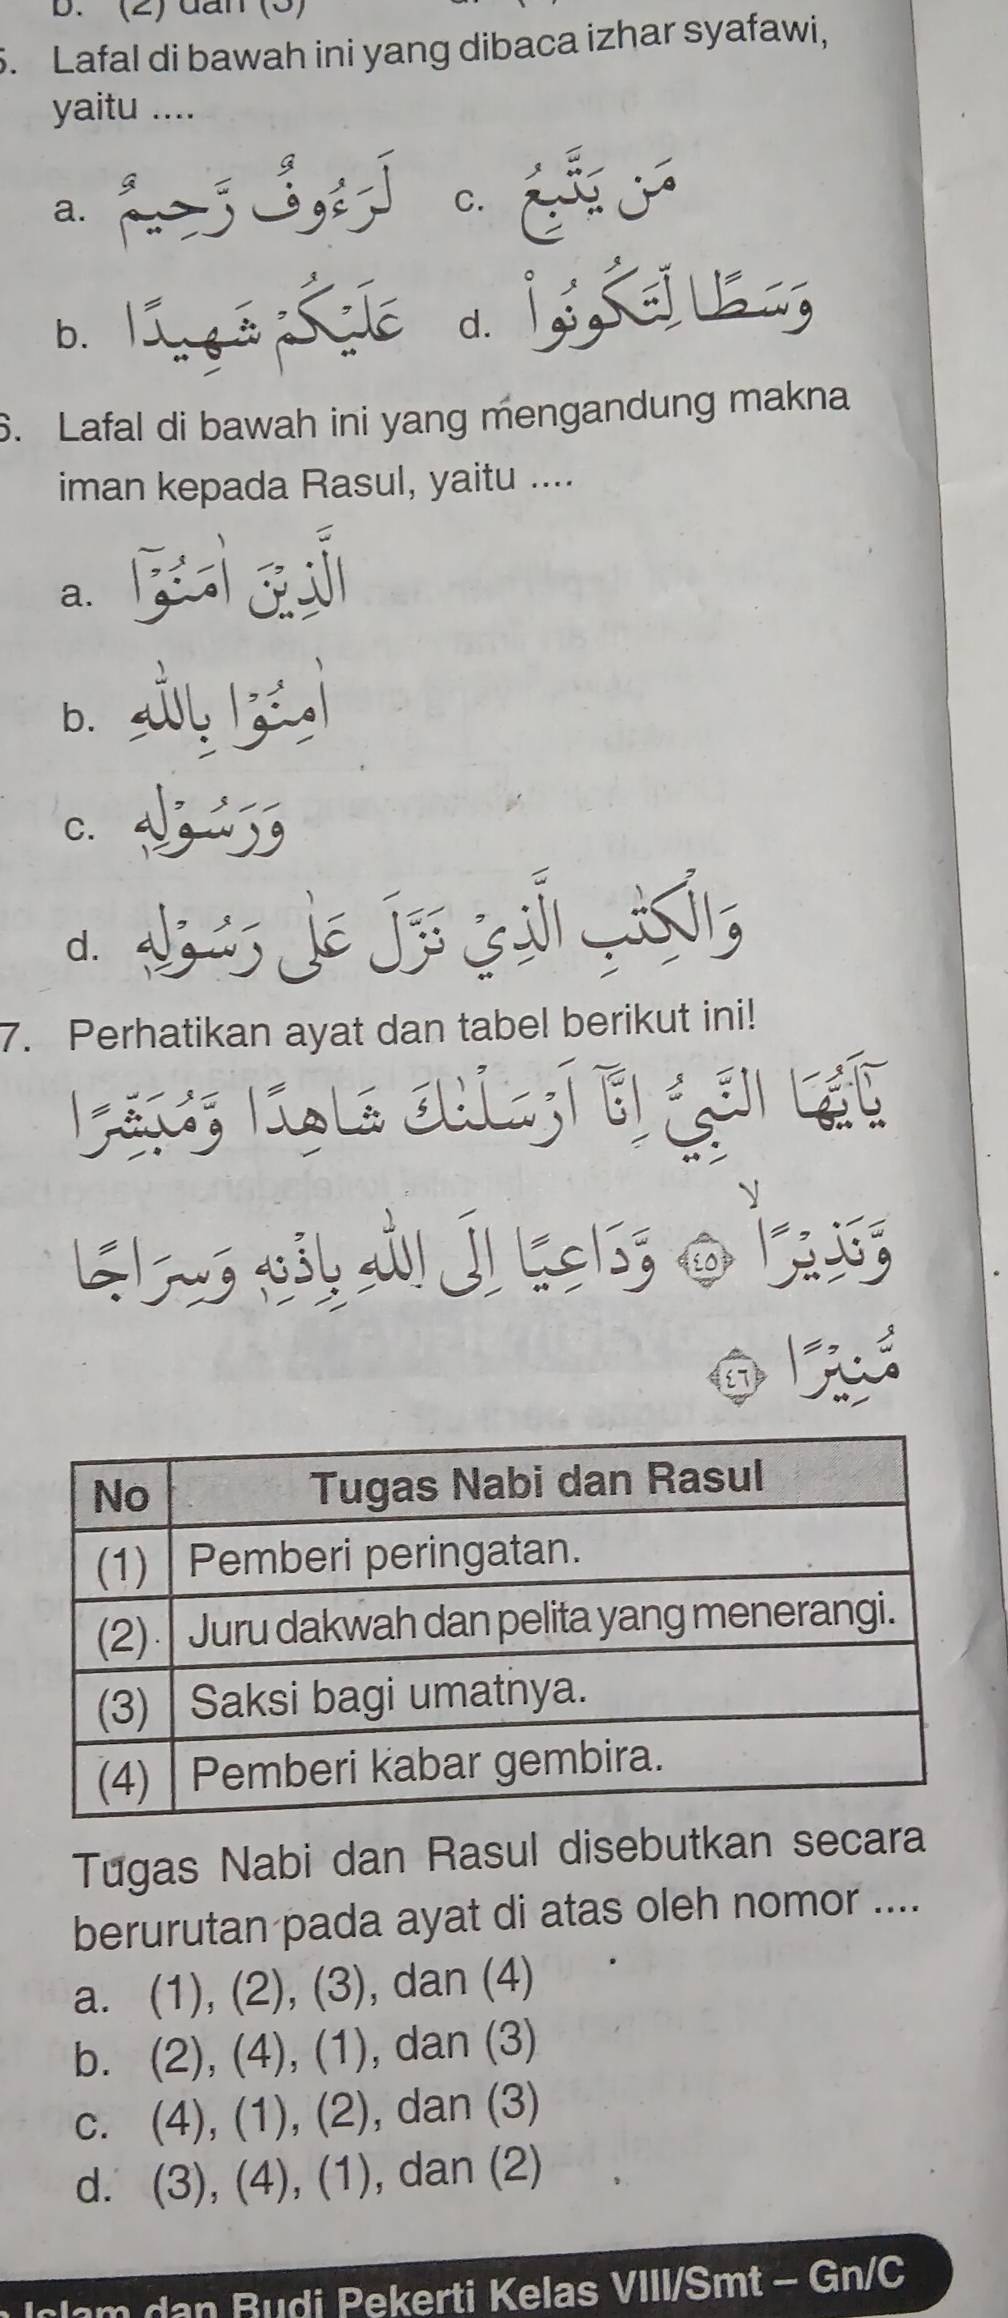 b. (2) dan (3)
5. Lafal di bawah ini yang dibaca izhar syafawi,
yaitu ....
a. لَرَءُوفٌ رَّحِيمٌ c. مَن يَتَّبِعُ
b. عَلَيْكُمْ شَهِيْدًا d. وَسَطًا لِّتَكُوْنُوْا
6. Lafal di bawah ini yang mengandung makna
iman kepada Rasul, yaitu ....
a. الَّذِيْنَ اٰمَنُوْٓا
b. اٰمِنُوْا بِاللّٰهِ
c. وَرَسُوْلِهٖ
d. وَالْكِتٰبِ الَّذِيْ نَزَّلَ عَلٰى رَسُوْلِهٖ
7. Perhatikan ayat dan tabel berikut ini!
يٰٓاَيُّهَا النَّبِيُّ اِنَّآ اَرْسَلْنٰكَ شَاهِدًا وَّمُبَشِّرًا
وَّنَذِيْرًاۙ ﴿٤٥﴾ وَّدَاعِيًا اِلَى اللّٰهِ بِاِذْنِهٖ وَسِرَاجًا
مُّنِيْرًا ﴿٤٦﴾
No Tugas Nabi dan Rasul
(1) Pemberi peringatan.
(2) Juru dakwah dan pelita yang menerangi.
(3) Saksi bagi umatnya.
(4) Pemberi kabar gembira.
Tugas Nabi dan Rasul disebutkan secara
berurutan pada ayat di atas oleh nomor ....
a. (1), (2), (3), dan (4)
b. (2), (4), (1), dan (3)
c. (4), (1), (2), dan (3)
d. (3), (4), (1), dan (2)
Islam dan Budi Pekerti Kelas VIII/Smt – Gn/C